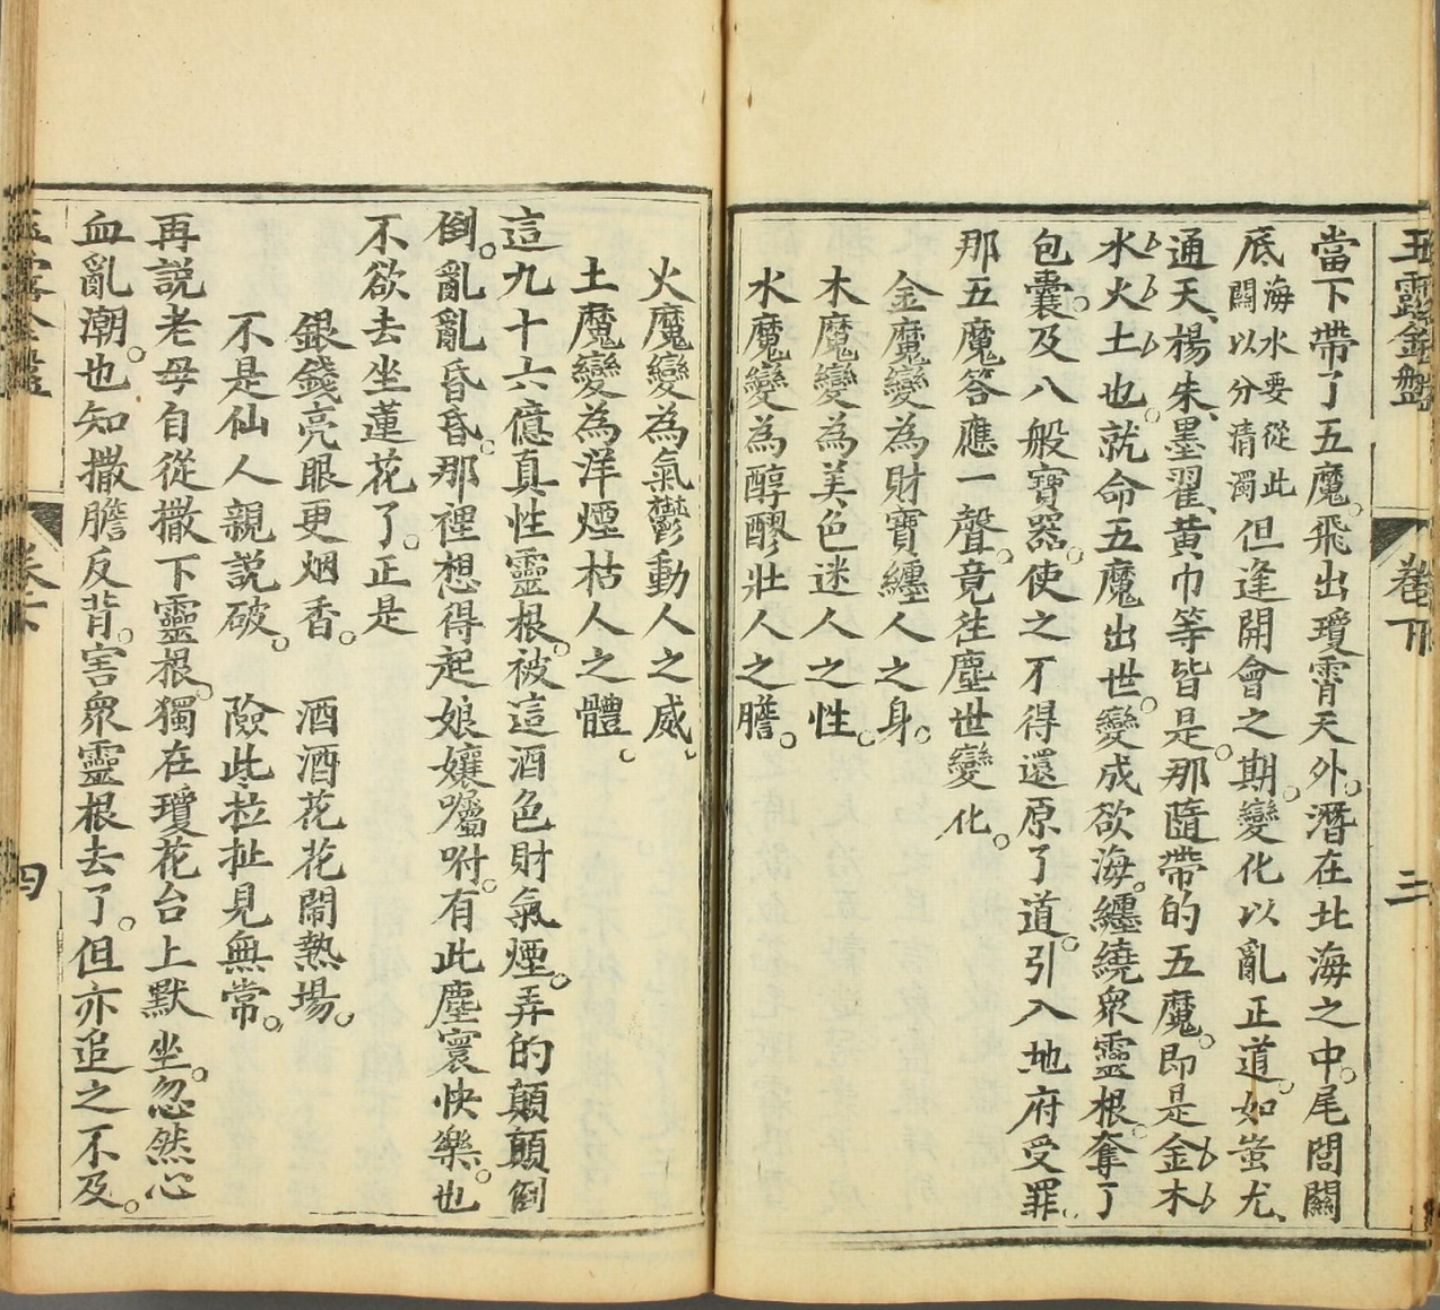 玉露金盤 卷下 三
當下帶了五魔。飛出瓊霄天外。潛在北海之中。尾閭關
底海水要從此關以分清濁但逢開會之期。變化以亂正道。如蚩尤、
通天、楊朱、墨翟、黃巾等皆是。那隨帶的五魔。即是金木
水火土也。就命五魔出世。變成欲海。纏繞衆靈根。奪了
包囊。及八般寶器。使之不得還原了道。引入地府受罪。
那五魔答應一聲。竟往塵世變化。
金魔變為財寶纏人之身。
木魔變為美色迷人之性。
水魔變為醇醪壯人之膽。
火魔變為氣鬱動人之威。
土魔變為洋煙枯人之體。
這九十六億真性靈根。被這酒色財氣煙。弄的顛顛倒
倒。亂亂昏昏。那裡想得起娘孃囑咐。有此塵寰快樂。也
不欲去坐蓮花了。正是
銀錢亮眼更烟香。 酒酒花花鬧熱場。
不是仙人親説破。 險些拉扯見無常。
再説老母自從撒下靈根。獨在瓊花台上默坐。忽然心
血亂潮。也知撒膽反背。害衆靈根去了。但亦追之不及。
卷下 四